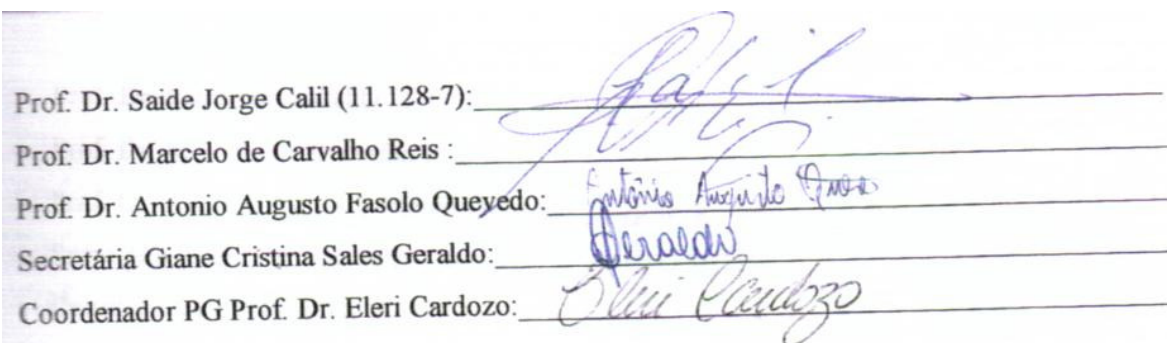 Prof. Dr. Saide Jorge Calil (11.128-7): Calil
Prof. Dr. Marcelo de Carvalho Reis :
Prof. Dr. Antonio Augusto Fasolo Quevedo: Antônio Augusto
Secretária Giane Cristina Sales Geraldo: Geraldo
Coordenador PG Prof. Dr. Eleri Cardozo: Eleri Cardozo